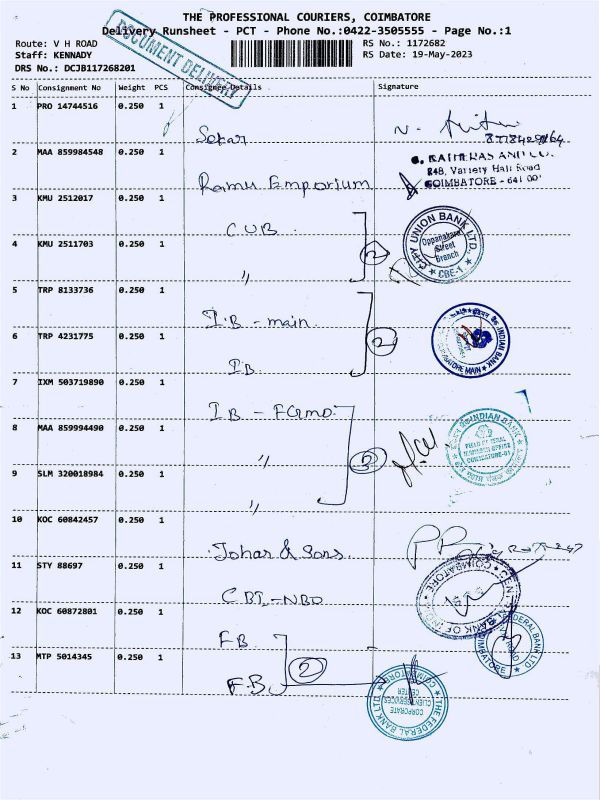 THE PROFESSIONAL COURIERS, COIMBATORE
Delivery Runsheet - PCT - Phone No.:0422-3505555 - Page No.:1
Route: V H ROAD RS No.: 1172682
Staff: KENNADY RS Date: 19-May-2023
DRS No.: DCJB117268201
DOCUMENT DELIVERY
S No Consignment No Weight PCS Consignee Details Signature
1 PRO 14744516 0.250 1
Sekar
2 MAA 859984548 0.250 1
Ramu Emporium
848, Variety Hall Road
COIMBATORE - 641 001
3 KMU 2512017 0.250 1
CUB
4 KMU 2511703 0.250 1
" 2
CITY UNION BANK LTD.,
Oppanakara
Street
Branch
CBE-1
5 TRP 8133736 0.250 1
IB - main
6 TRP 4231775 0.250 1
IB 2
INDIAN BANK
COIMBATORE MAIN
7 IXM 503719890 0.250 1
IB - FGMO
8 MAA 859994490 0.250 1
" 3
INDIAN BANK
9 SLM 320018984 0.250 1
"
10 KOC 60842457 0.250 1
Johar & Sons
11 STY 88697 0.250 1
CBI - NBD
CENTRAL BANK OF INDIA
COIMBATORE
12 KOC 60872801 0.250 1
FB
FEDERAL BANK LTD
COIMBATORE
13 MTP 5014345 0.250 1
FB 2
THE FEDERAL BANK LTD
CORPORATE
CLIENT SERVICES
CENTER
COIMBATORE